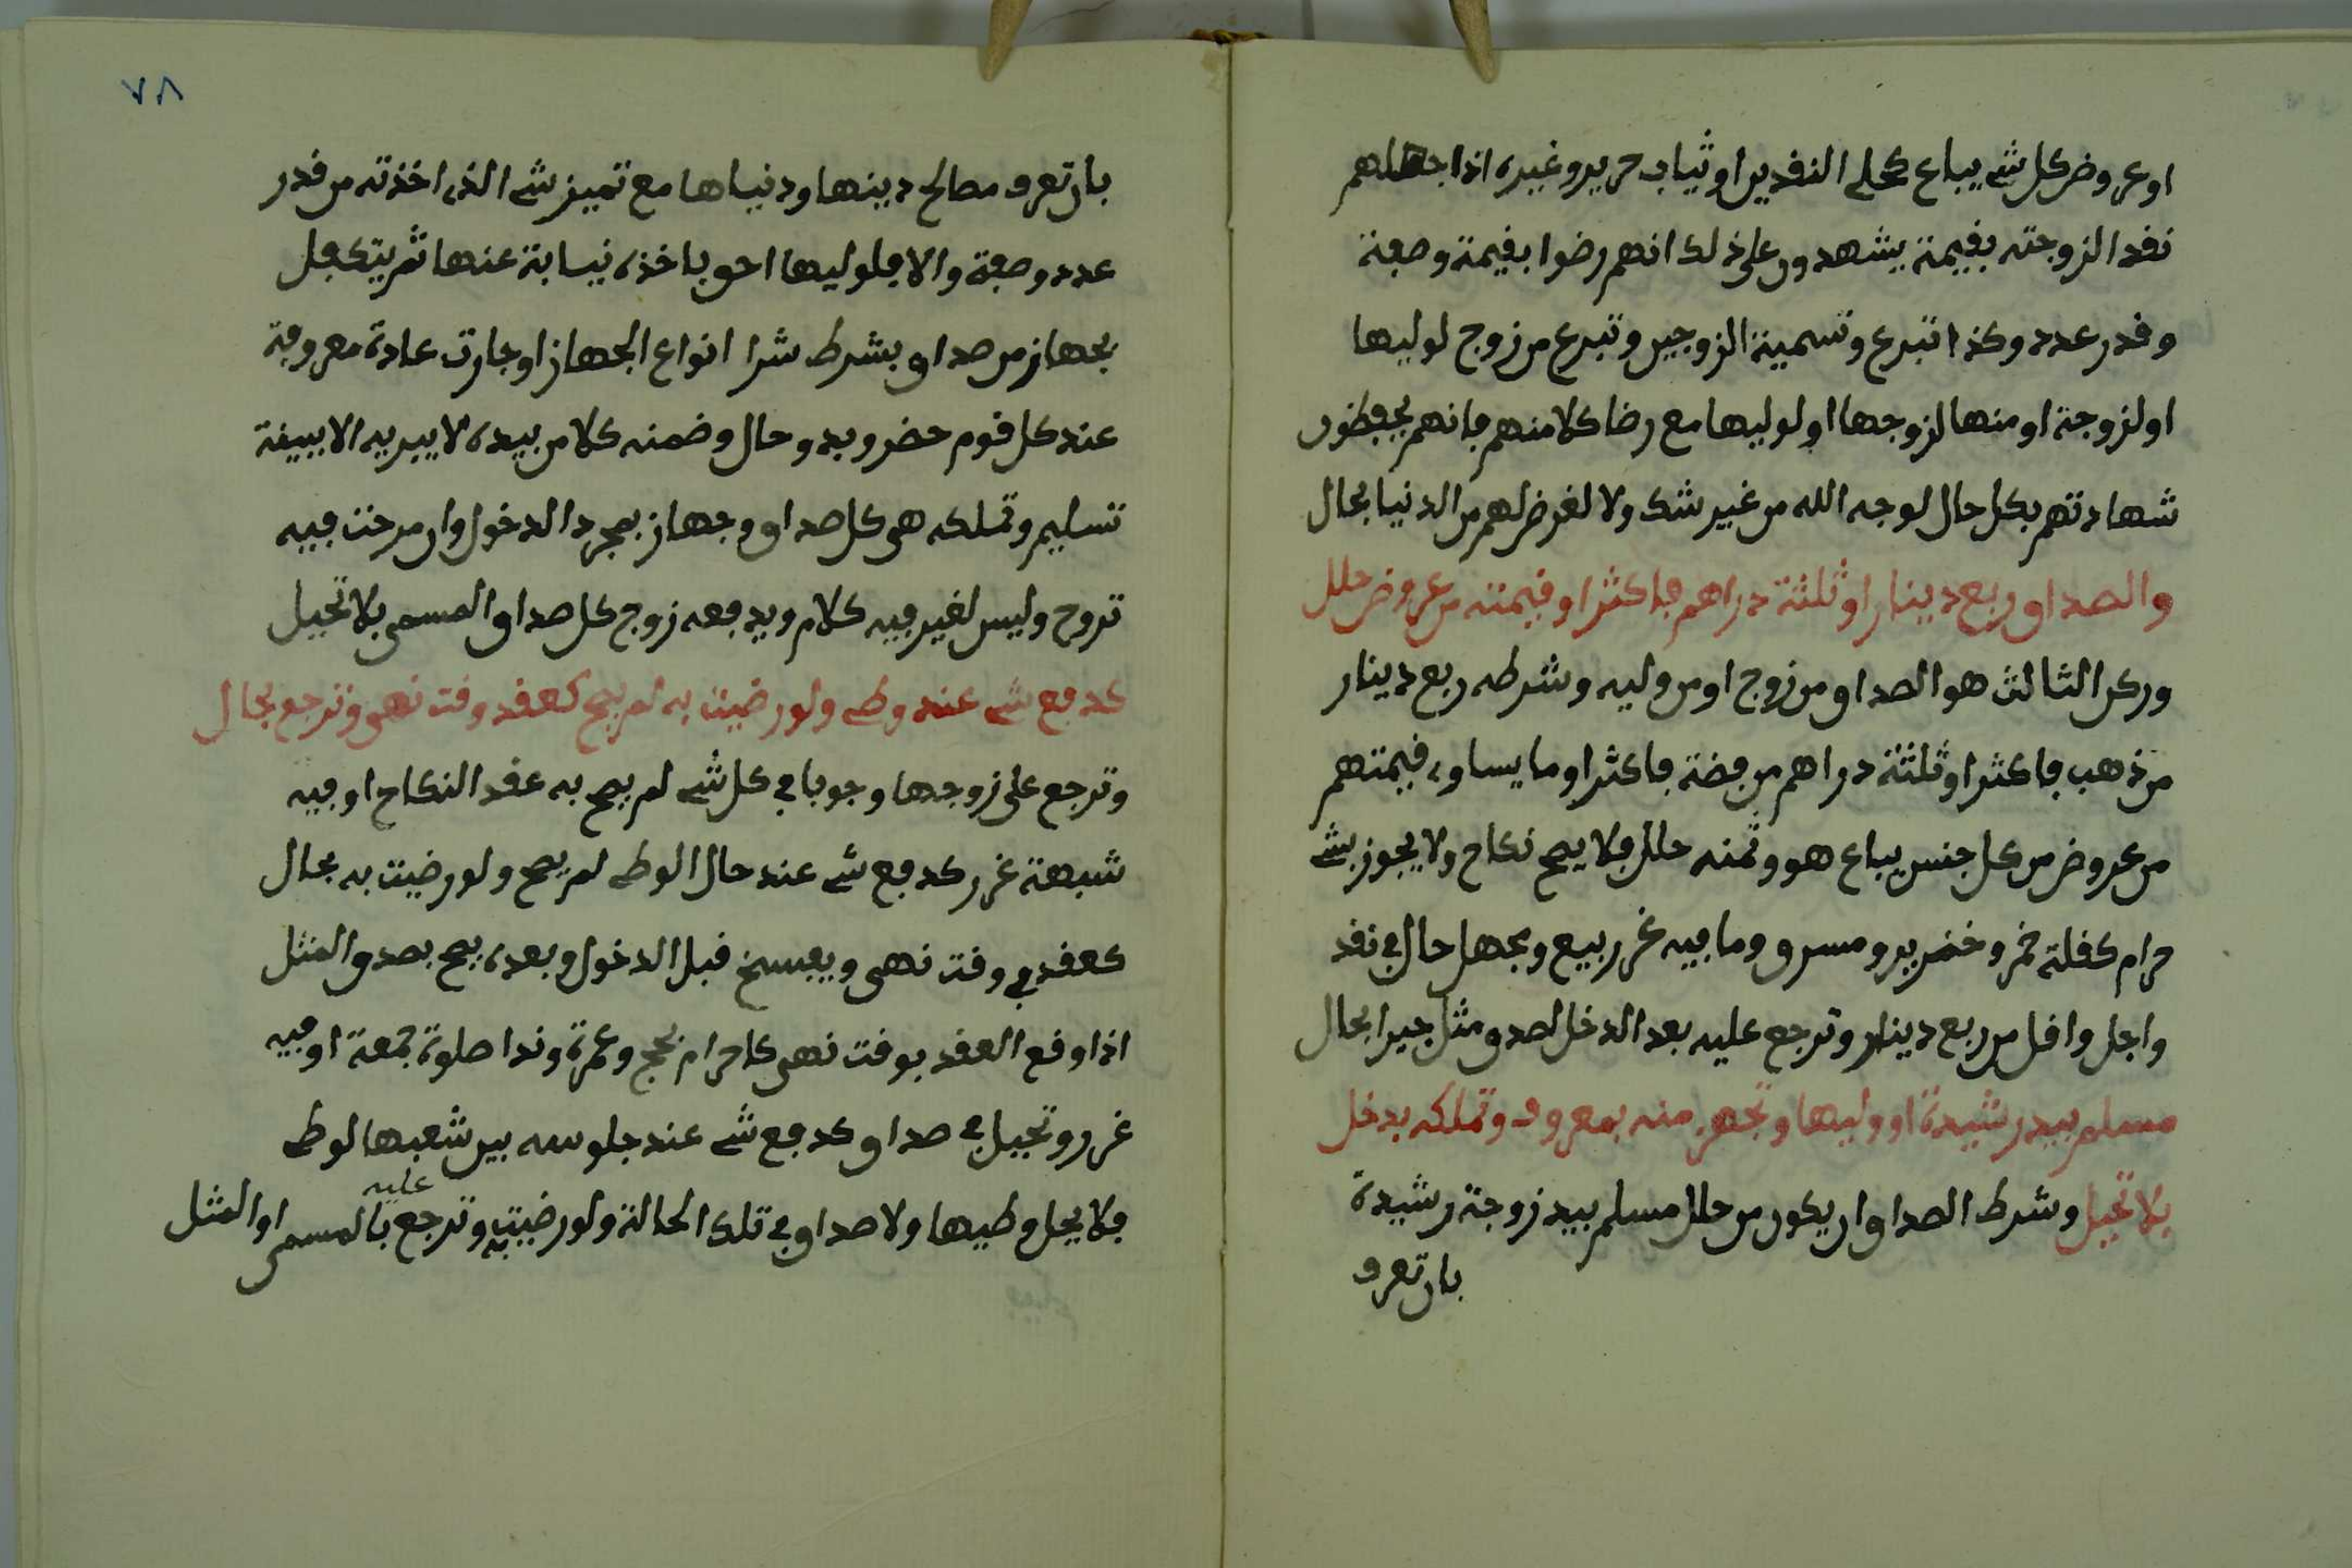 او عروض كل شے يباع كحلے النقدين او ثياب حرير وغيره اذا جهلهم
نقدا لزوجته بقيمة يشهدون على ذلك انهم رضوا بقيمة وصفة
وقدر عدد وكذا تبرع وتسمية الزوجين وتبرع من زوج لوليها
او لزوجة او منها لزوجها او لوليها مع رضا كلا منهم فانهم يحفظون
شهادتهم بكل حال لوجه الله من غير شك ولا لغرض لهم من الدنيا بحال
والصداق ربع دينار او ثلثة دراهم فاكثر او قيمته من عروض حلل
وركن الثالث هو الصداق من زوج او من وليه وشرطه ربع دينار
من ذهب فاكثر او ثلثة دراهم من فضة فاكثر او ما يساوي قيمتهم
من عروض من كل جنس يباع هو وثمنه حلل فلا يصح نكاح ولا يجوز بشے
حرام كقلة خمر وخنزير ومسرق وما فيه غرر بيع ويجهل حال في نقد
واجل واقل من ربع دينار وترجع عليه بعد الدخل لصدق مثل جبرا بحال
مسلم بيد رشيدة او وليها وتجهز منه بمعروف وتملكه بدخل
بلا تحيل وشرط الصداق ان يكون من حلل مسلم بيد زوجة رشيدة
بان تعرف
٧٨
بان تعرف مصالح دينها ودنياها مع تمييز شے الذي اخذته من قدر
عدد وصفة والا فلوليها احق باخذه نيابة عنها ثم يتكفل
بجهاز من صداق بشرط شرا انواع الجهاز او جارت عادة معروفة
عند كل قوم حضر وبدو وحال وضمنه كلا من بيده لا يبريه الا ببينة
تسليم وتملكه هى كل صداق وجهاز بمجرد الدخول وان مرحت فيه
تروح وليس لغير فيه كلام ويدفعه زوج كل صداق المسمى بلا تحيل
كدفع شے عند وطے ولو رضيت به لم يصح كعقد وقت نهى وترجع بحال
وترجع على زوجها وجوبا في كل شے لم يصح به عقد النكاح او فيه
شبهة غرر كدفع شے عند حال الوطے لم يصح ولو رضيت به بحال
كعقد في وقت نهى ويفسخ قبل الدخول وبعده يصح بصدق المثل
اذا وقع العقد بوقت نهى كاحرام بحج وعمرة وندا صلوة جمعة او فيه
غرر وتحيل في صداق كدفع شے عند جلوسه بين شعبها لوطے
فلا يحل وطيها ولا صداق في تلك الحالة ولو رضيت به وترجع عليه بالمسمى او المثل